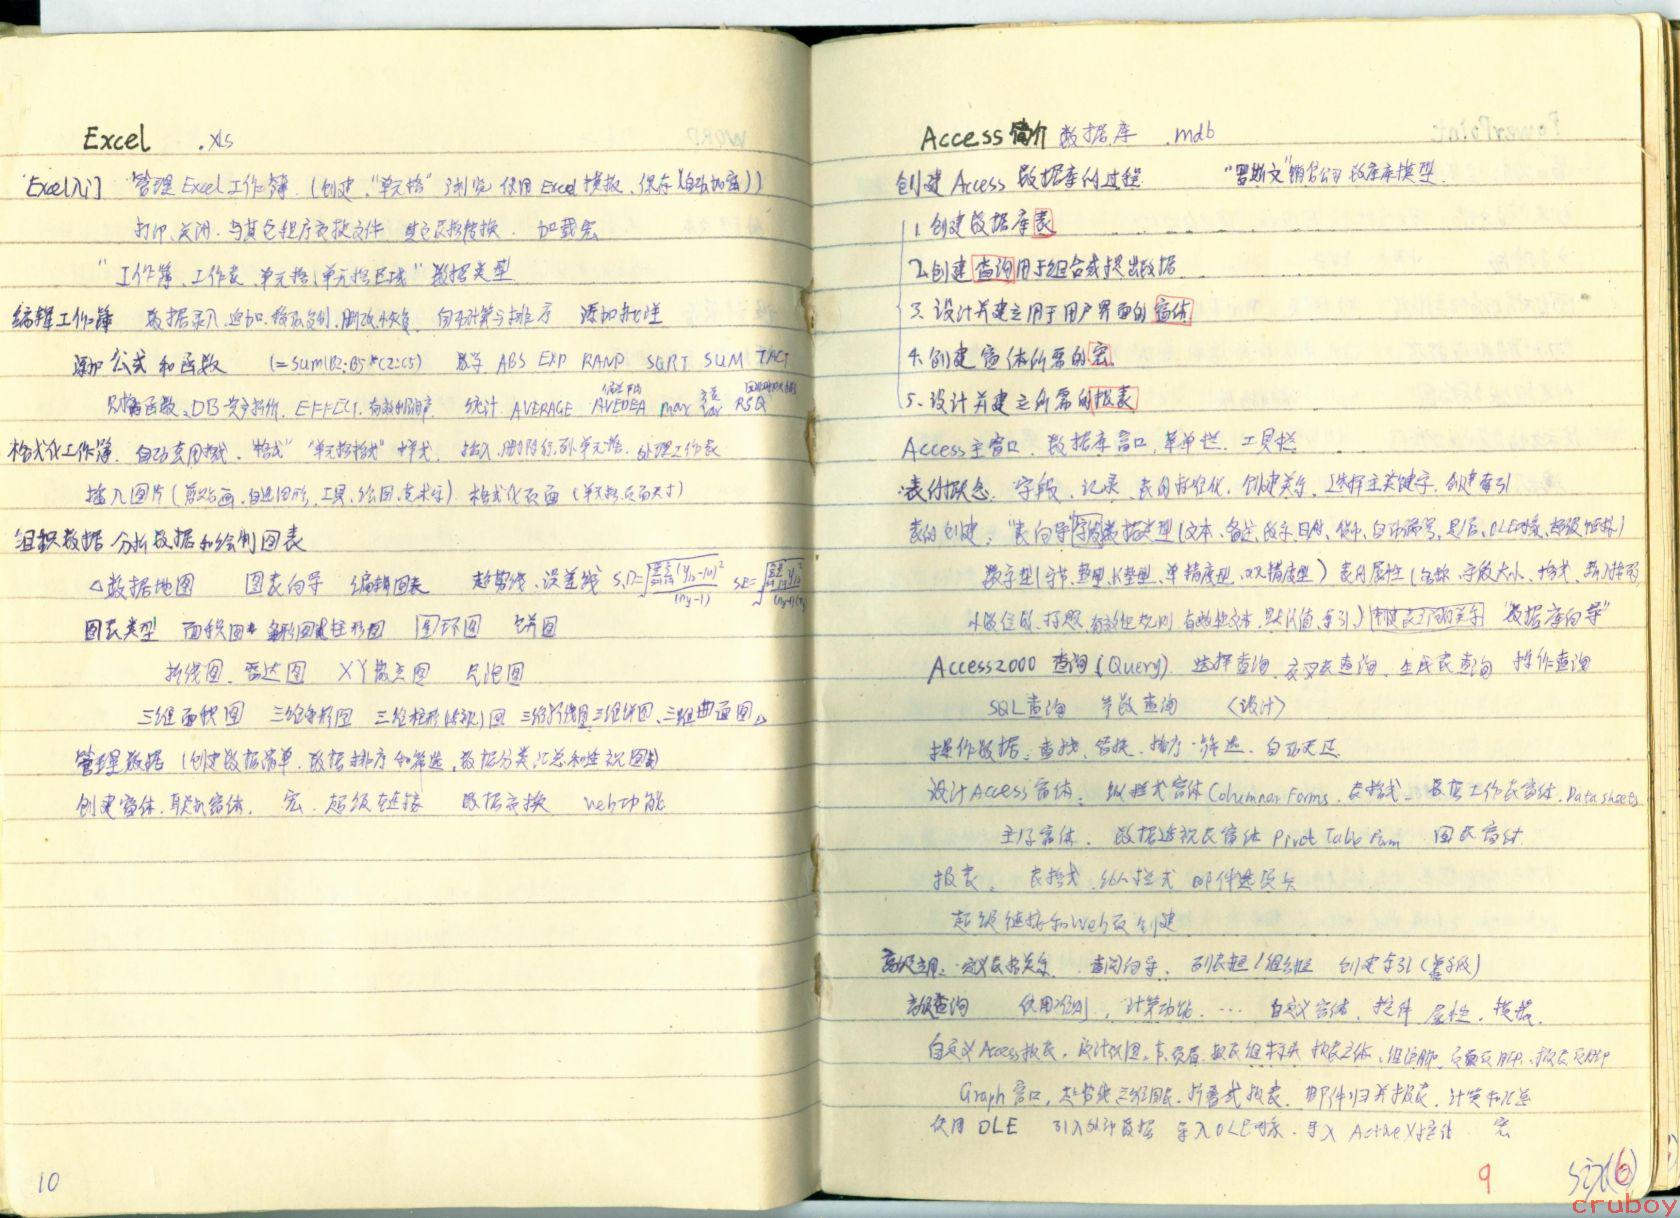 Excel .xls
Excel入门 管理Excel工作簿.(创建."单元格"浏览 使用Excel模板.保存(自动加密))
打印、关闭.与其它程序交换文件 其它表格转换. 加载宏
"工作簿、工作表、单元格(单元格区域" 数据类型
编辑工作簿 数据录入.追加.移动复制.删改.恢复. 自动计算与排序 添加批注
添加公式和函数 (=Sum(B2:B5*C2:C5) 数学 ABS EXP RAND SQRT SUM FACT
财务函数、DB 折价. EFFECT.有效利率 统计. AVERAGE AVEDEA max 方差 Var RSQ
格式化工作簿. 自动套用格式. "格式" "单元格格式" 样式. 插入.删除行.列.单元格. 处理工作表
插入图片(剪贴画.自选图形.工具.绘图.艺术字). 格式化页面(单元格页面尺寸)
组织数据.分析数据和绘制图表
△数据地图 图表向导 编辑图表 趋势线.误差线 S.D= (ny-1) SE=
图表类型 面积图 条形图 柱形图 圆环图 饼图
折线图.雷达图 XY散点图 气泡图
三维面积图 三维条形图 三维柱形图 三维折线图 三维饼图、三维曲面图
管理数据(创建数据清单.数据排序和筛选.数据分类汇总和透视图表)
创建窗体.联机窗体. 宏.超级链接 数据交换 Web功能
10
Access简介 数据库 .mdb
创建Access数据库的过程 "罗斯文"销售公司数据库模型.
1.创建数据库表
2.创建查询用于组合或提出数据
3.设计并建立用于用户界面的窗体
4.创建窗体所需的宏
5.设计并建立所需的报表
Access主窗口.数据库窗口.菜单栏.工具栏
表的概念. 字段、记录、表的标准化. 创建关系. 选择主关键字. 创建索引
表的创建. "表向导" 字段数据类型(文本.备注.数字.日期.货币.自动编号.是/否.OLE对象.超级链接)
数字型(字节.整型.长整型.单精度型.双精度型) 表的属性(名称.字段大小.格式.输入掩码.
小数位数.标题.有效性规则.有效性文本.默认值.索引.) 创建表之间的关系 "数据库向导"
Access2000 查询(Query). 选择查询.交叉表查询.生成表查询 操作查询
SQL查询 参数查询 〈设计〉
操作数据:查找.替换.排序.筛选.自动更正
设计Access窗体: 纵栏式窗体Columnar Forms.表格式.数据工作表窗体.Data sheets
主/子窗体. 数据透视表窗体 Pivot Table Form 图表窗体.
报表. 表格式.纵栏式 邮件选项卡
超级链接和Web页创建
高级应用: 定义表格关系. 查询向导. 列表框/组合框 创建索引
高级查询 使用准则, 计算功能. … 自定义窗体.控件 属性.
自定义Access报表.设计视图. 报表主体.组页脚.
Graph窗口.趋势线 三维图表. 折叠式报表. 邮件归并报表. 计算和汇总
使用OLE 引入外部数据 导入OLE对象.导入ActiveX控件 宏
9
six(6)
cruboy